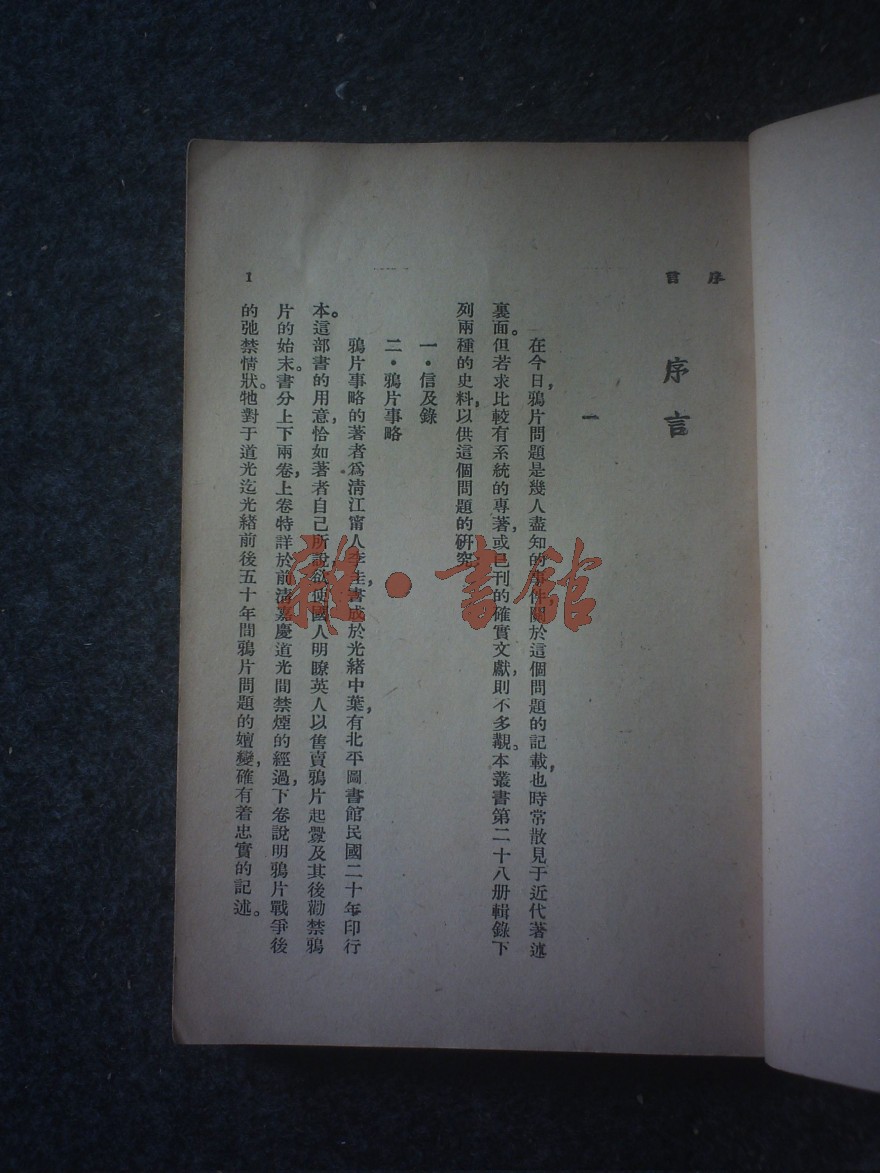 序言
序言
一
在今日，鴉片問題是幾人盡知的事件關於這個問題的記載，也時常散見于近代著述
裏面。但若求比較有系統的專著，或已刊的確實文獻，則不多覯。本叢書第二十八册輯錄下
列兩種的史料，以供這個問題的研究
一·信及錄
二·鴉片事略
鴉片事略的著者爲淸江甯人李圭，書成於光緒中葉，有北平圖書館民國二十年印行
本。這部書的用意，恰如著者自己所說欲使國人明瞭英人以售賣鴉片起釁及其後勸禁鴉
片的始末。書分上下兩卷，上卷特詳於前淸嘉慶道光間禁煙的經過，下卷說明鴉片戰爭後
的弛禁情狀。牠對于道光迄光緒前後五十年間鴉片問題的嬗變，確有着忠實的記述。
1
雜·書館